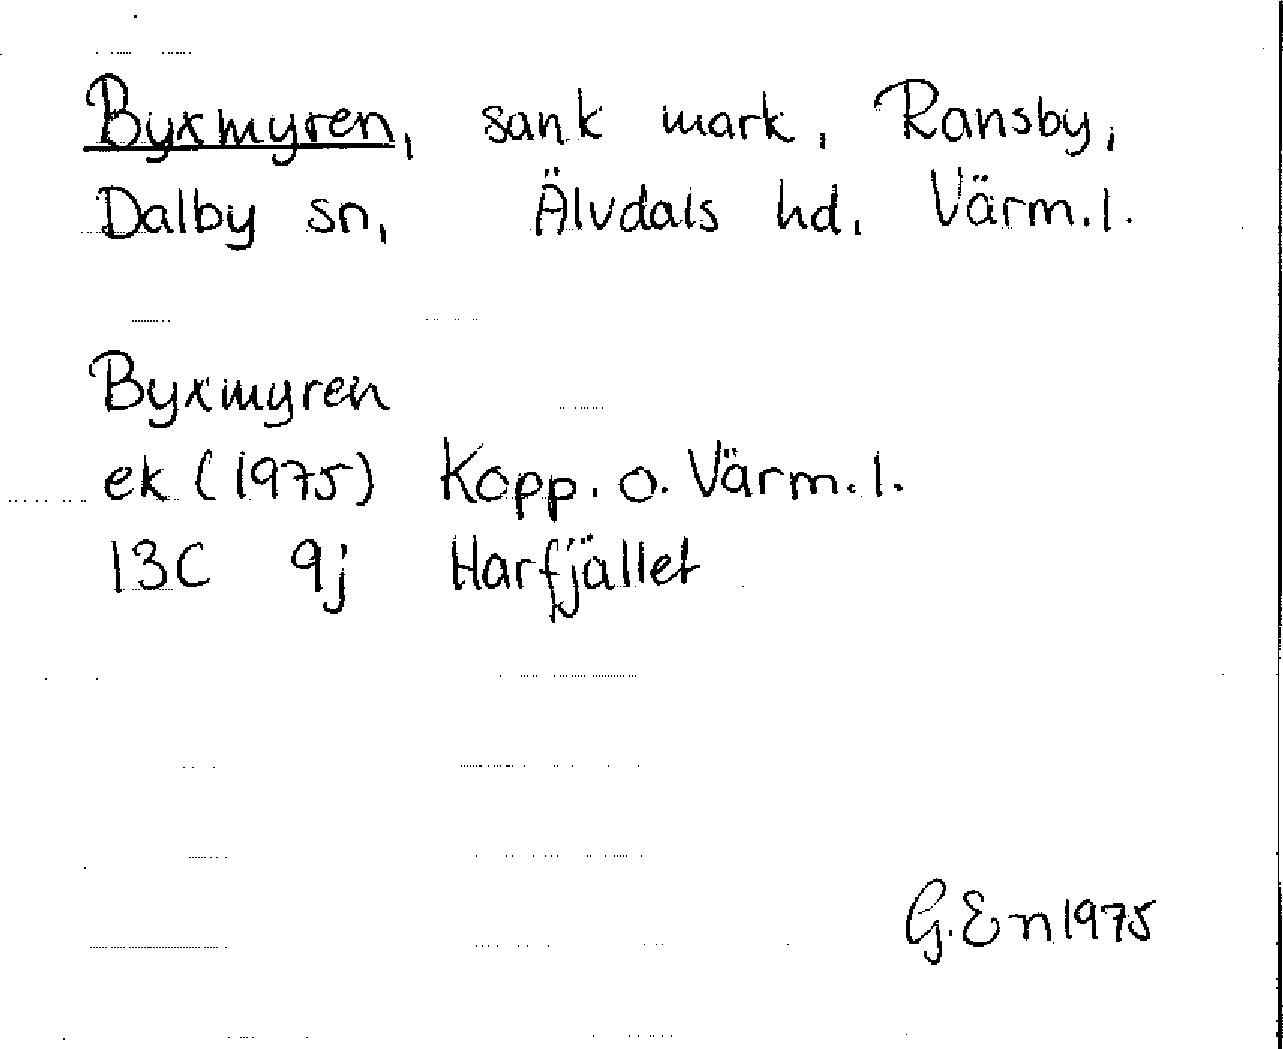 Byxmyren, sank mark, Ransby,
Dalby sn, Älvdals hd, Värm.l.
Byxmyren
ek (1975) Kopp. o. Värm.l.
13C 9j Harfjället
G.En 1975